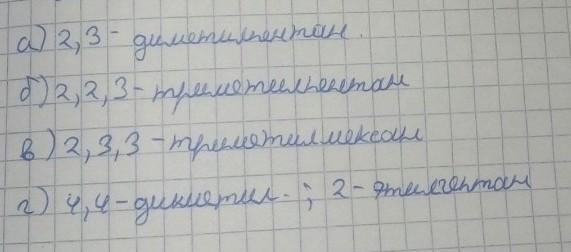 а) 2,3- диметилпентан.
б) 2,2,3-триметилпентан
в) 2,3,3-триметилгексан
г) 4,4-диметил-; 2-этилгептан